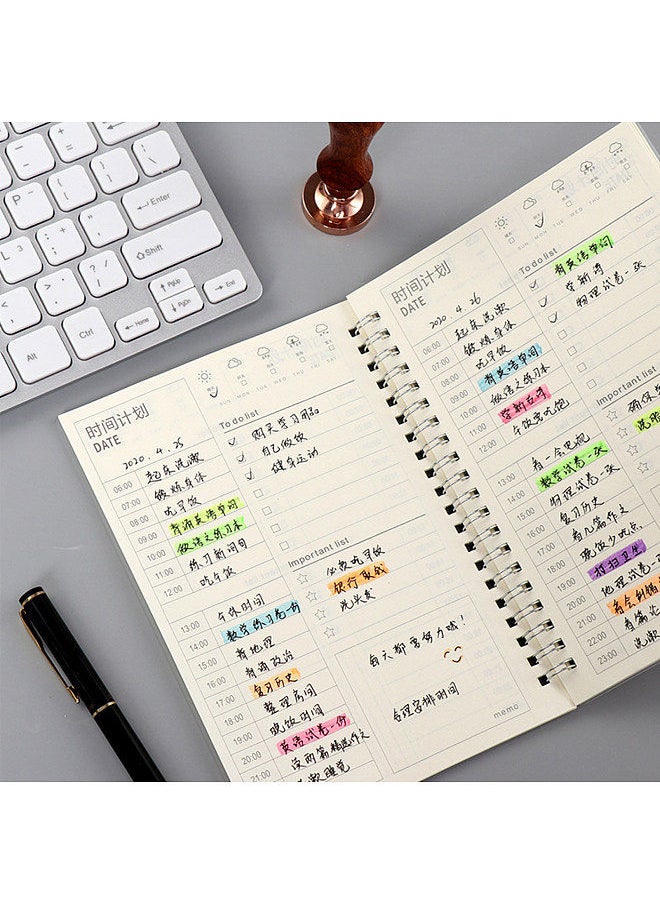 P
L
?
/
Enter
Shift
PgUp
PgDn
Home
End
Alt
Ctrl
时间计划
DATE
2020.4.25
06:00 起床洗漱
07:00 锻炼身体
08:00 吃早饭
09:00 背诵英语单词
10:00 做语文练习本
11:00 练习新词句
12:00 吃午饭
13:00 午休时间
14:00 数学练习卷一份
15:00 背地理
16:00 背诵政治
17:00 复习历史
18:00 整理房间
19:00 晚饭时间
20:00 英语试卷一份
21:00
SUN MON TUE WED THU FRI SAT
To do list
购买学习用品
自己做饭
健身运动
Important list
必须吃早饭
银行取钱
洗头发
每天都要努力哦!
合理安排时间
memo
时间计划
DATE
2020.4.26
06:00 起床洗漱
07:00 锻炼身体
08:00 吃早饭
09:00 背英语单词
10:00 做语文练习本
11:00 学新古诗
12:00 午饭要吃饱
13:00 看一会电视
14:00 数学试卷一张
15:00 物理试卷一张
16:00 复习历史
17:00 看几篇作文
18:00 晚饭少吃点
19:00 打扫卫生
20:00 地理试卷一
21:00
22:00
23:00 洗漱
SUN MON TUE WED THU FRI SAT
To do list
背英语单词
学新诗
物理试卷一张
Important list
确保